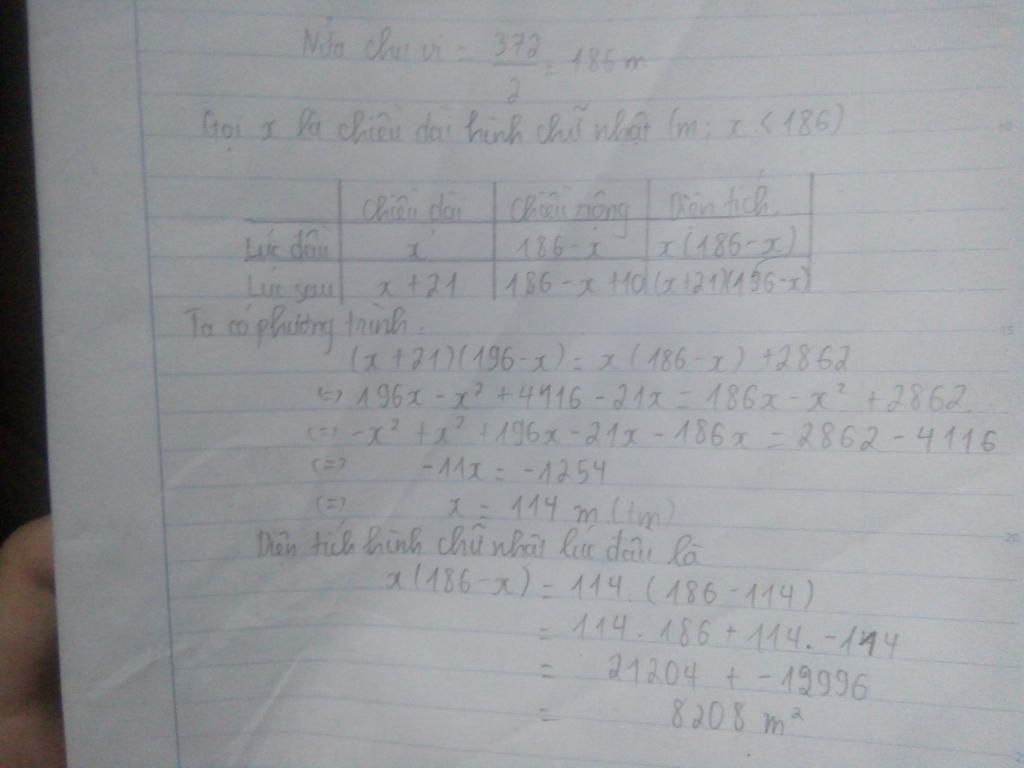 Nửa chu vi = 372/2 = 186 m
Gọi x là chiều dài hình chữ nhật (m; x < 186)
Chiều dài Chiều rộng Diện tích
Lúc đầu x 186-x x(186-x)
Lúc sau x+21 186-x+10 (x+21)(196-x)
Ta có phương trình.
(x+21)(196-x) = x(186-x) +2862
(=) 196x - x² + 4116 - 21x = 186x - x² + 2862.
(=) -x² + x² + 196x - 21x - 186x = 2862 - 4116
(=) -11x = -1254
(=) x = 114 m (tm)
Diện tích hình chữ nhật lúc đầu là
x(186-x) = 114.(186-114)
= 114.186 + 114.-114
= 21204 + -12996
= 8208 m²